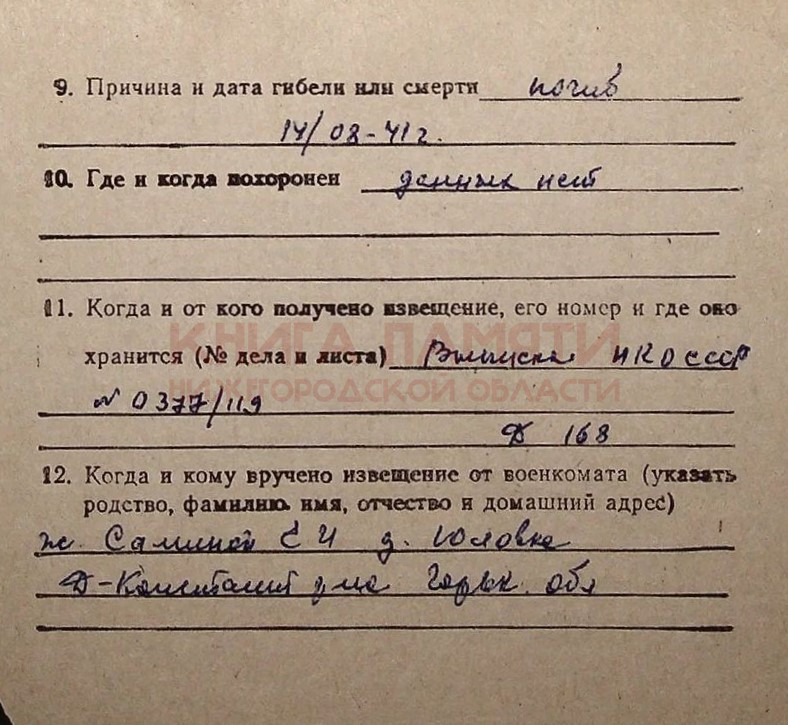 9. Причина и дата гибели или смерти погиб
14/08-41г.
10. Где и когда похоронен данных нет
11. Когда и от кого получено извещение, его номер и где оно
КНИГА ПАМЯТИ
хранится (№ дела и листа) Выписка НКО СССР
НИЖЕГОРОДСКОЙ ОБЛАСТИ
N 0377/119
Д 168
12. Когда и кому вручено извещение от военкомата (указать
родство, фамилию, имя, отчество и домашний адрес)
ж. Саминой Е И д.
Д-Константи Горьк. обл